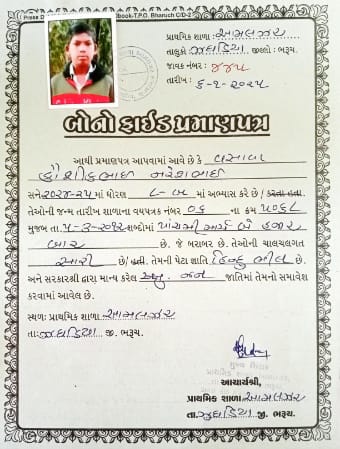 પ્રાથમિક શાળા: આમલઝર
તાલુકો ઝઘડિયા જીલ્લો: ભરૂચ.
જાવક નંબર: ૪૪૫
તારીખ: ૬-૧-૨૦૨૫
બોનોફાઈડ પ્રમાણપત્ર
આથી પ્રમાણપત્ર આપવામાં આવે છે કે વસાવા
કૌશીકભાઈ નરેશભાઈ
સને ૨૦૨૪-૨૫માં ધોરણ ૮-બ માં અભ્યાસ કરે છે / કરતા હતા.
તેઓની જન્મ તારીખ શાળાના વયપત્રક નંબર ૦૬ ના ક્રમ ૫૦૬૮
મુજબ તા. ૫-૩-૨૦૧૨ શબ્દોમાં પાંચમી માર્ચ બે હજાર
બાર છે. જે બરાબર છે. તેઓની ચાલચલગત
સારી છે / હતી. તેમની પેટા જ્ઞાતિ હિન્દુ ભીલ છે.
અને સરકારશ્રી દ્વારા માન્ય કરેલ અનુ. જન જાતિમાં તેમનો સમાવેશ
કરવામાં આવેલ છે.
સ્થળ: પ્રાથમિક શાળા આમલઝર
તા: ઝઘડિયા જી. ભરૂચ.
મુખ્ય શિક્ષક
પ્રાથમિક શાળા
આચાર્યશ્રી,
પ્રાથમિક શાળા આમલઝર
તા. ઝઘડિયા જી. ભરૂચ.